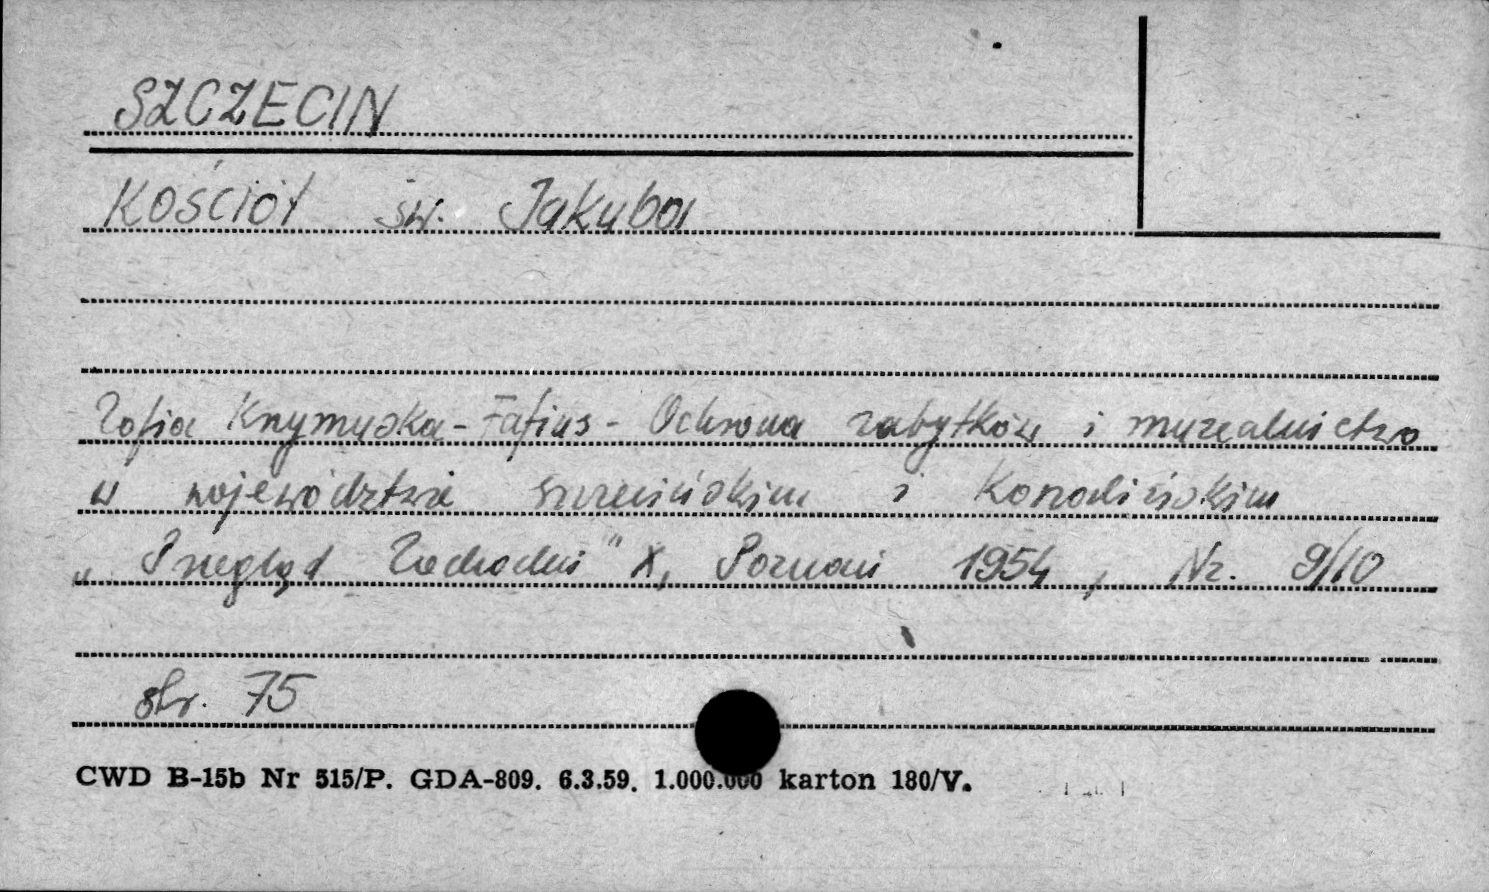 SZCZECIN
Kościół św. Jakuba
Zofia Krzymuska-Fafius - Ochrona zabytków i muzealnictwo
w województwie szczecińskim i Koszalińskim
„Przegląd Zachodni" X, Poznań 1954, Nr. 9/10
str. 75
CWD B-15b Nr 515/P. GDA-809. 6.3.59. 1.000.000 karton 180/V.